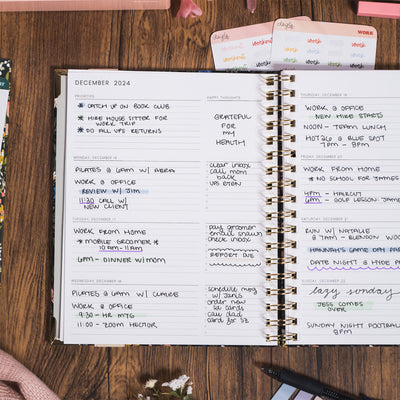 DECEMBER 2024
PRIORITIES
* CATCH UP ON BOOK CLUB
* HIRE HOUSE SITTER FOR
WORK TRIP
* DO ALL UPS RETURNS
HAPPY THOUGHTS
GRATEFUL
FOR
MY
HEALTH
MONDAY, DECEMBER 16
PILATES @ 6AM W/ ABRA
WORK @ OFFICE
REVIEW W/ JIM
11:30 CALL W/
NEW CLIENT
clear inbox
call mom
back
UPS @ 7AM
TUESDAY, DECEMBER 17
WORK FROM HOME
* MOBILE GROOMER *
10AM-11AM
6PM - DINNER W/MOM
pay groomer
email shawn
check inbox
REPORT DUE
WEDNESDAY, DECEMBER 18
PILATES @ 6AM W/ CLAIRE
WORK @ OFFICE
9:30 - HR MTG
11:00 - ZOOM HECTOR
schedule mtg
w/ Janis
order new
id cards
call dad
card for SZ
THURSDAY, DECEMBER 19
WORK @ OFFICE
NEW HIRE STARTS
NOON - TEAM LUNCH
@ BLUE SPOT
7PM - 9PM
FRIDAY, DECEMBER 20
WORK FROM HOME
* NO SCHOOL FOR JAMES
4PM - HAIRCUT
6PM - GOLF LESSON: JAMES
SATURDAY, DECEMBER 21
RUN W/ NATALIE
@ 7AM - BLENDON WOODS
HANNAH'S GAME DAY
DATE NIGHT @ HYDE
SUNDAY, DECEMBER 22
lazy sunday
JESS COMES
OVER
SUNDAY NIGHT FOOTBALL
8PM
WORK
work
work